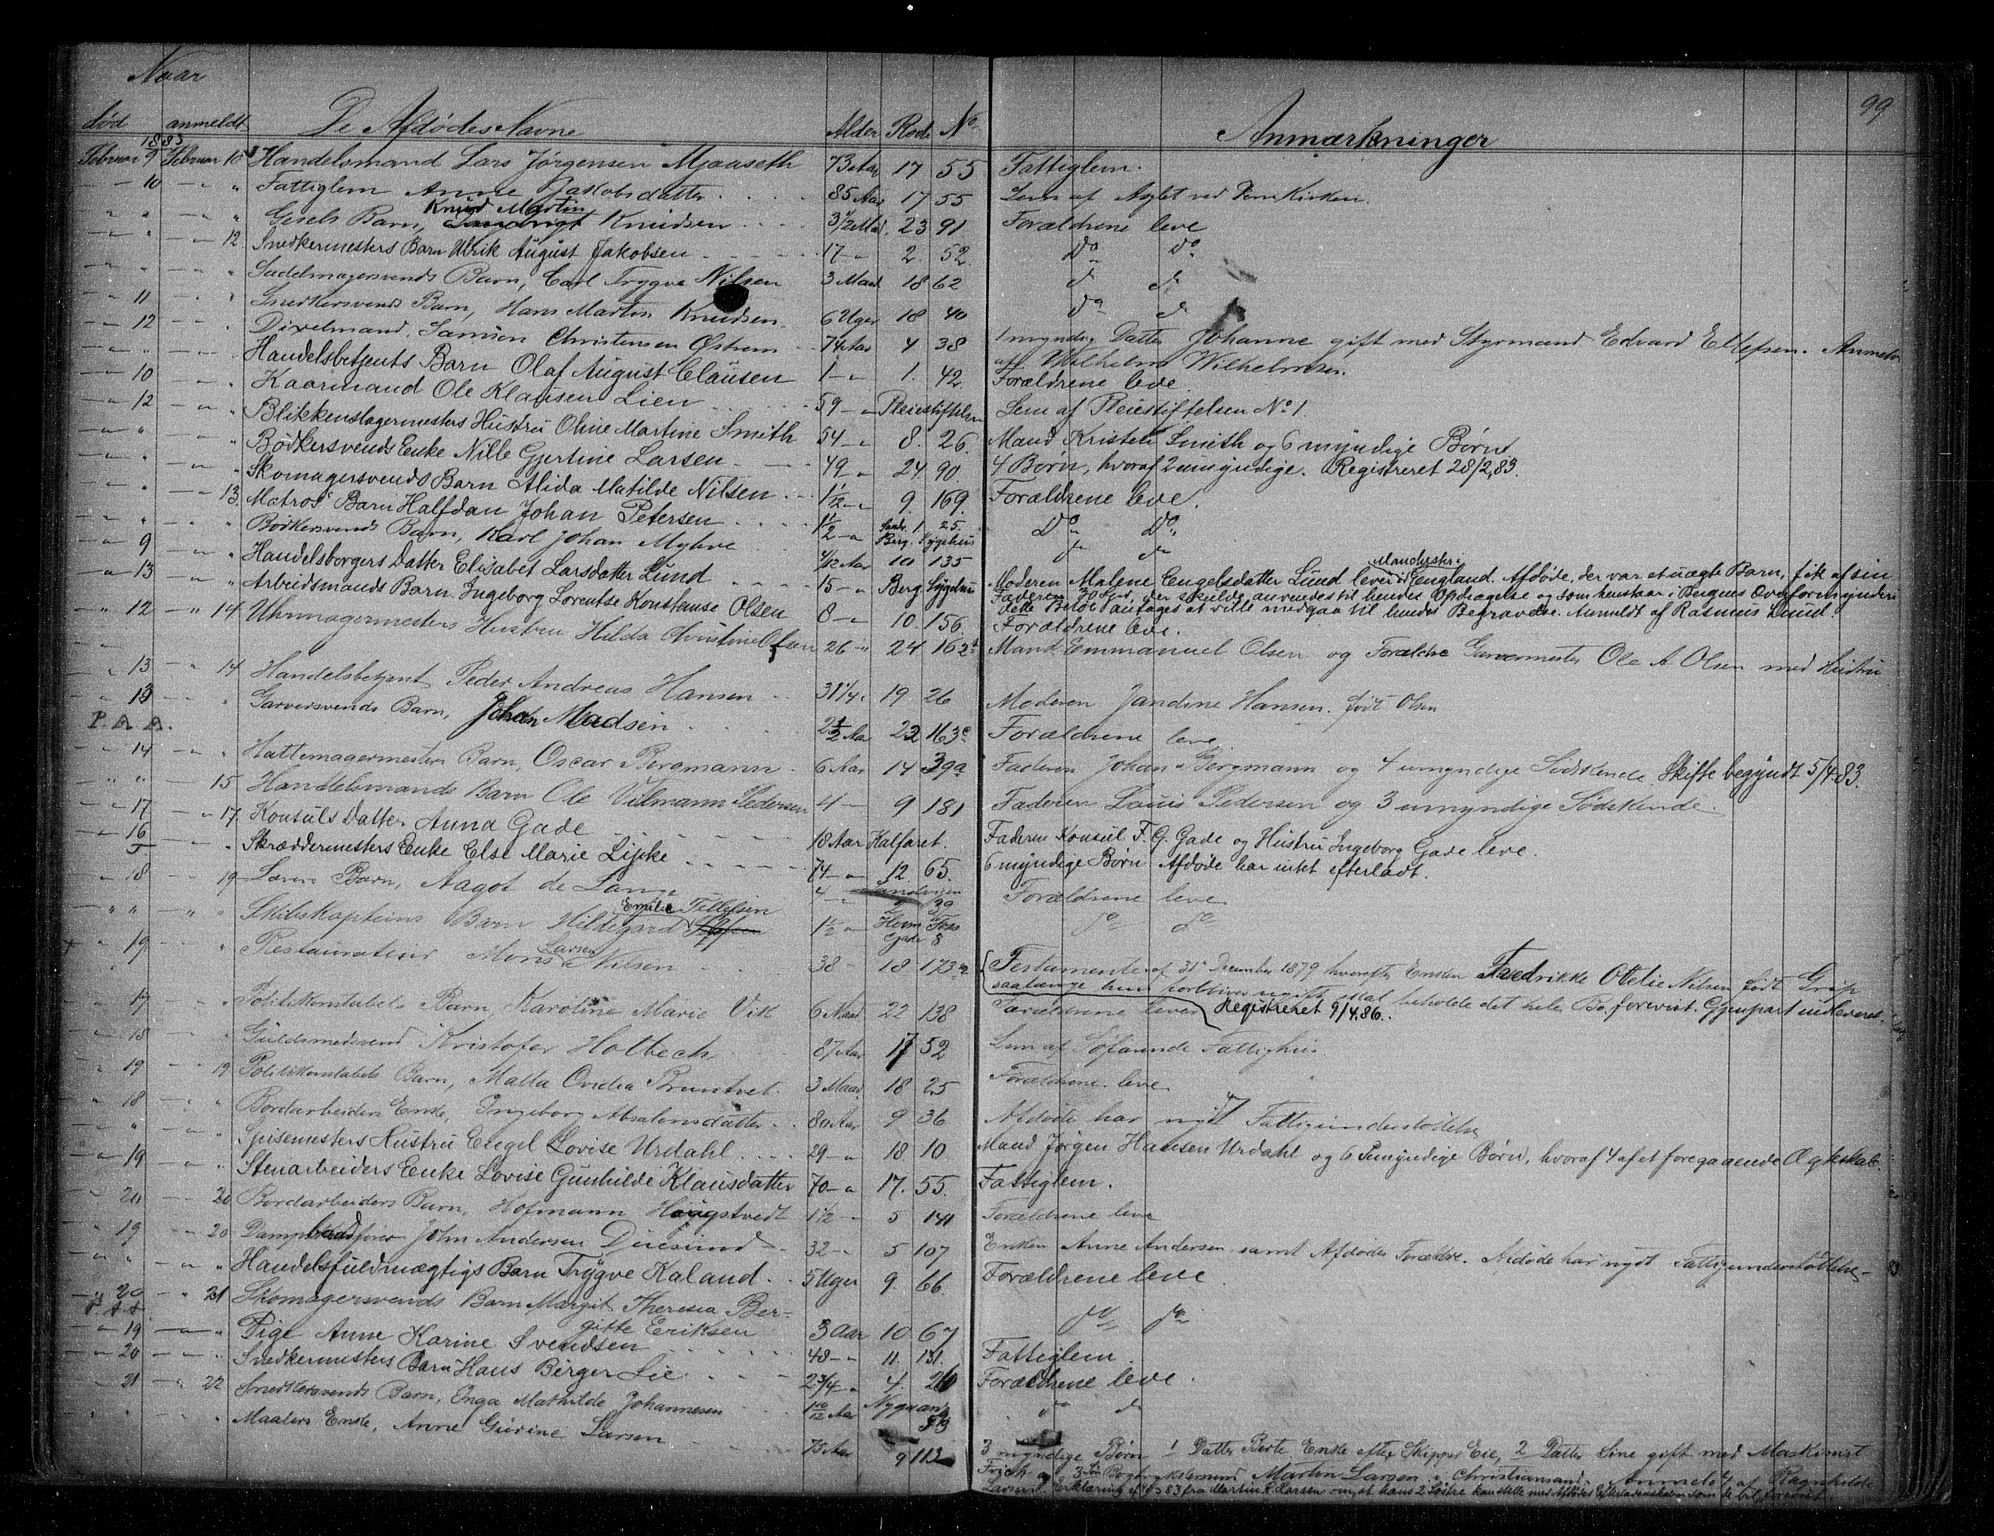 99
Naar
død anmeldt De Afdødes Navne Alder Rode No Anmærkninger
1883
Februar 9 Februar 10 Handelsmand Lars Jørgensen Mjaaseth 73 Aar 17 55 Fattiglem.
" 10 " " Fattiglem Anne Jakobsdatter 85 Aar 17 55 Lem af Asylet ved Domkirken.
" " " " Gsels Barn, Knud Martin Knudsen 3 1/2 Md. 23 91 Forældrene leve
" " " 12 Snedkermesters Barn Ulrik August Jakobsen 17 " 2. 52. Do Do
" " " " Sadelmagersvends Barn, Carl Trygve Nilsen 3 Maad 18 62 do do
" 11 " " Snedkersvends Barn, Hans Martin Knudsen 6 Uger 18 40 do do
" 12 " " Samson Christensen Østrem 74 Aar 4 38 1 myndig Datter Johanne gift med Styrmand Edvard Ellefsen. Anmeldt
af Wilhelm Wilhelmsen.
" " " " Handelsbetjents Barn Olaf August Clausen 1 " 1. 42 Forældrene leve
" 10 " " Kaarmand Ole Klausen Lien 59 " Pleiestiftelsen Lem af Pleiestiftelsen No 1.
" 12 " " Blikkenslagermesters Hustru Oline Martine Smith 54 " 8. 26. Mand Kristen Smith og 6 myndige Børn
" " " " Bødkersvends Enke Nille Gjertine Larsen 49 " 24 90. 4 Børn, hvoraf 2 umyndige. Registreret 28/2,83.
" " " " Skomagersvends Barn Alida Matilde Nilsen 1 1/2 " 9. 169. Forældrene leve.
" " " 13. Matros' Barn Halfdan Johan Petersen 1 1/2 " Sandv. 1. 25. Do Do
" " " " Bødkersvends Barn, Karl Johan Myhre Berg. Sygehus do do
" 9 " " Handelsborgers Datter Elisabet Larsdatter Lund 15 " Berg. Sygehus Moderen Malene Engelsdatter Lund lever i Manchester England. Afdøde, der var et uægte Barn, fik af sin
Faderen 30 Spd, der skulde anvendes til hendes Opdragelse og som henstaar i Bergens Overformynderi
dette Beløb antages at ville medgaa til hendes Begravelse. Anmeldt af Rasmus Lund.
" 13 " " Arbeidsmands Barn Ingeborg Lorentse Konstanse Olsen 8 " 10. 156. Forældrene leve.
" 12 " 14 Uhrmagermesters Hustru Hilda Christine Olsen 26 " 24 162 Mand Emmanuel Olsen og Forældre Garvermester Ole A Olsen med Hustru
" 13 " 14 Handelsbetjent Peder Andreas Hansen 31 1/4 " 19 26 Moderen Jandine Hansen. født Olsen
" 13 " " Garversvends Barn, Johan Madsen 2 1/2 Aar 23 163c Forældrene leve.
P. A. A.
" 14 " " Hattemagermesters Barn, Oscar Bergmann 6 Aar 14 39a Faderen Johan Bergmann og 4 umyndige Sødskende Skifte begyndt 5/4 83.
" " " 15 Handelsmands Barn Ole Vilmann Pedersen 4 " 9 181 Faderen Louis Pedersen og 3 umyndige Sødskende.
" 17 " 17 Konsuls Datter Anna Gade 18 Aar Kalfaret. Faderen Konsul F. G. Gade og Hustru Ingeborg Gade leve.
" 16 " " Skræddermesters Enke Else Marie Lipke 74 " 12. 65. 6 myndige Børn. Afdøde har intet efterladt.
" 18 " 19 Lærers Barn, Aagot de Lange 4 " Sandvigen Forældrene leve
" " " " Skibskapteins Barn Hildegard Emilie Tellefsen 1 1/2 " do do
" 19 " " Restauratiør Mons Larsen Nilsen 38 " 18 173a Testamente af 31 December 1879 hvorefter Enken Fredrikke Otelie Nilsen født Grip
saalænge hun forbliver ugift skal beholde det hele Bo forevist. Gjenpart indleveret.
" 17 " " Politikonstabels Barn, Karoline Marie Vik 6 Maad 22 138 Forældrene lever Registreret 9/4.86.
" 18 " " Guldsmedsvend Kristofer Holbech 87 Aar 17 52 Lem af Søfarende Fattighus.
" 19 " 19 Politikonstabels Barn, Malta Ovidia Bruntvet 3 Maad 18 25 Forældrene leve
" 18 " " Bordarbeiders Enke, Ingeborg Absalonsdatter 80 Aar 9 36 Afdøde har nydt Fattigunderstøttelse
" " " " Spisemesters Hustru Engel Lovise Urdahl 29 " 18. 10. Mand Jørgen Hansen Urdahl og 6 umyndige Børn, hvoraf 4 af et foregaaende Ægteskab.
" 19 " " Stenarbeiders Enke Lovise Gunhilde Klausdatter 70 " 17. 55. Fattiglem.
" 20 " 20 Bordarbeiders Barn, Hofmann Haugstvedt 1 1/2 " 5 141 Forældrene leve
" 19 " 20 John Andersen Duesund 32 " 5 107 Enken Anne Andersen samt Afdødes Forældre. Afdøde har nydt Fattigunderstøttelse
" " " " Handelsfuldmægtigs Barn Trygve Kaland 5 Uger 9. 66. Forældrene leve.
" 20 " 21 Skomagersvends Barn Margit Theresia Ber-
gitte Eriksen 3 Aar 10 67 do do
" 19 " " Pige Anne Karine Svendsen 48 " 11. 131. Fattiglem.
" 20 " " Snedkermesters Barn Hans Birger Lie 2 3/4 " 4. Forældrene leve.
" 21 " 22 Smedkersvends Barn, Inga Mathilde Johannesen 1 10/12 Aar do do
" " " " Malers Enke, Anne Gurine Larsen 75 Aar 9 112 3 myndige Børn 1 Datter Berte Enke efter Skipper Eie, 2 Datter Line gift med Maskinist
Frich og 3 Søn Bogtrykkersvend Martin Larsen i Christiansand. Anmeldt af Ragnhilde
Larsen. Erklæring af 83 fra Martin K Larsen om, at hans 2 Søstre kan stelle med Afdødes Efterladenskaber som de bil forevist.